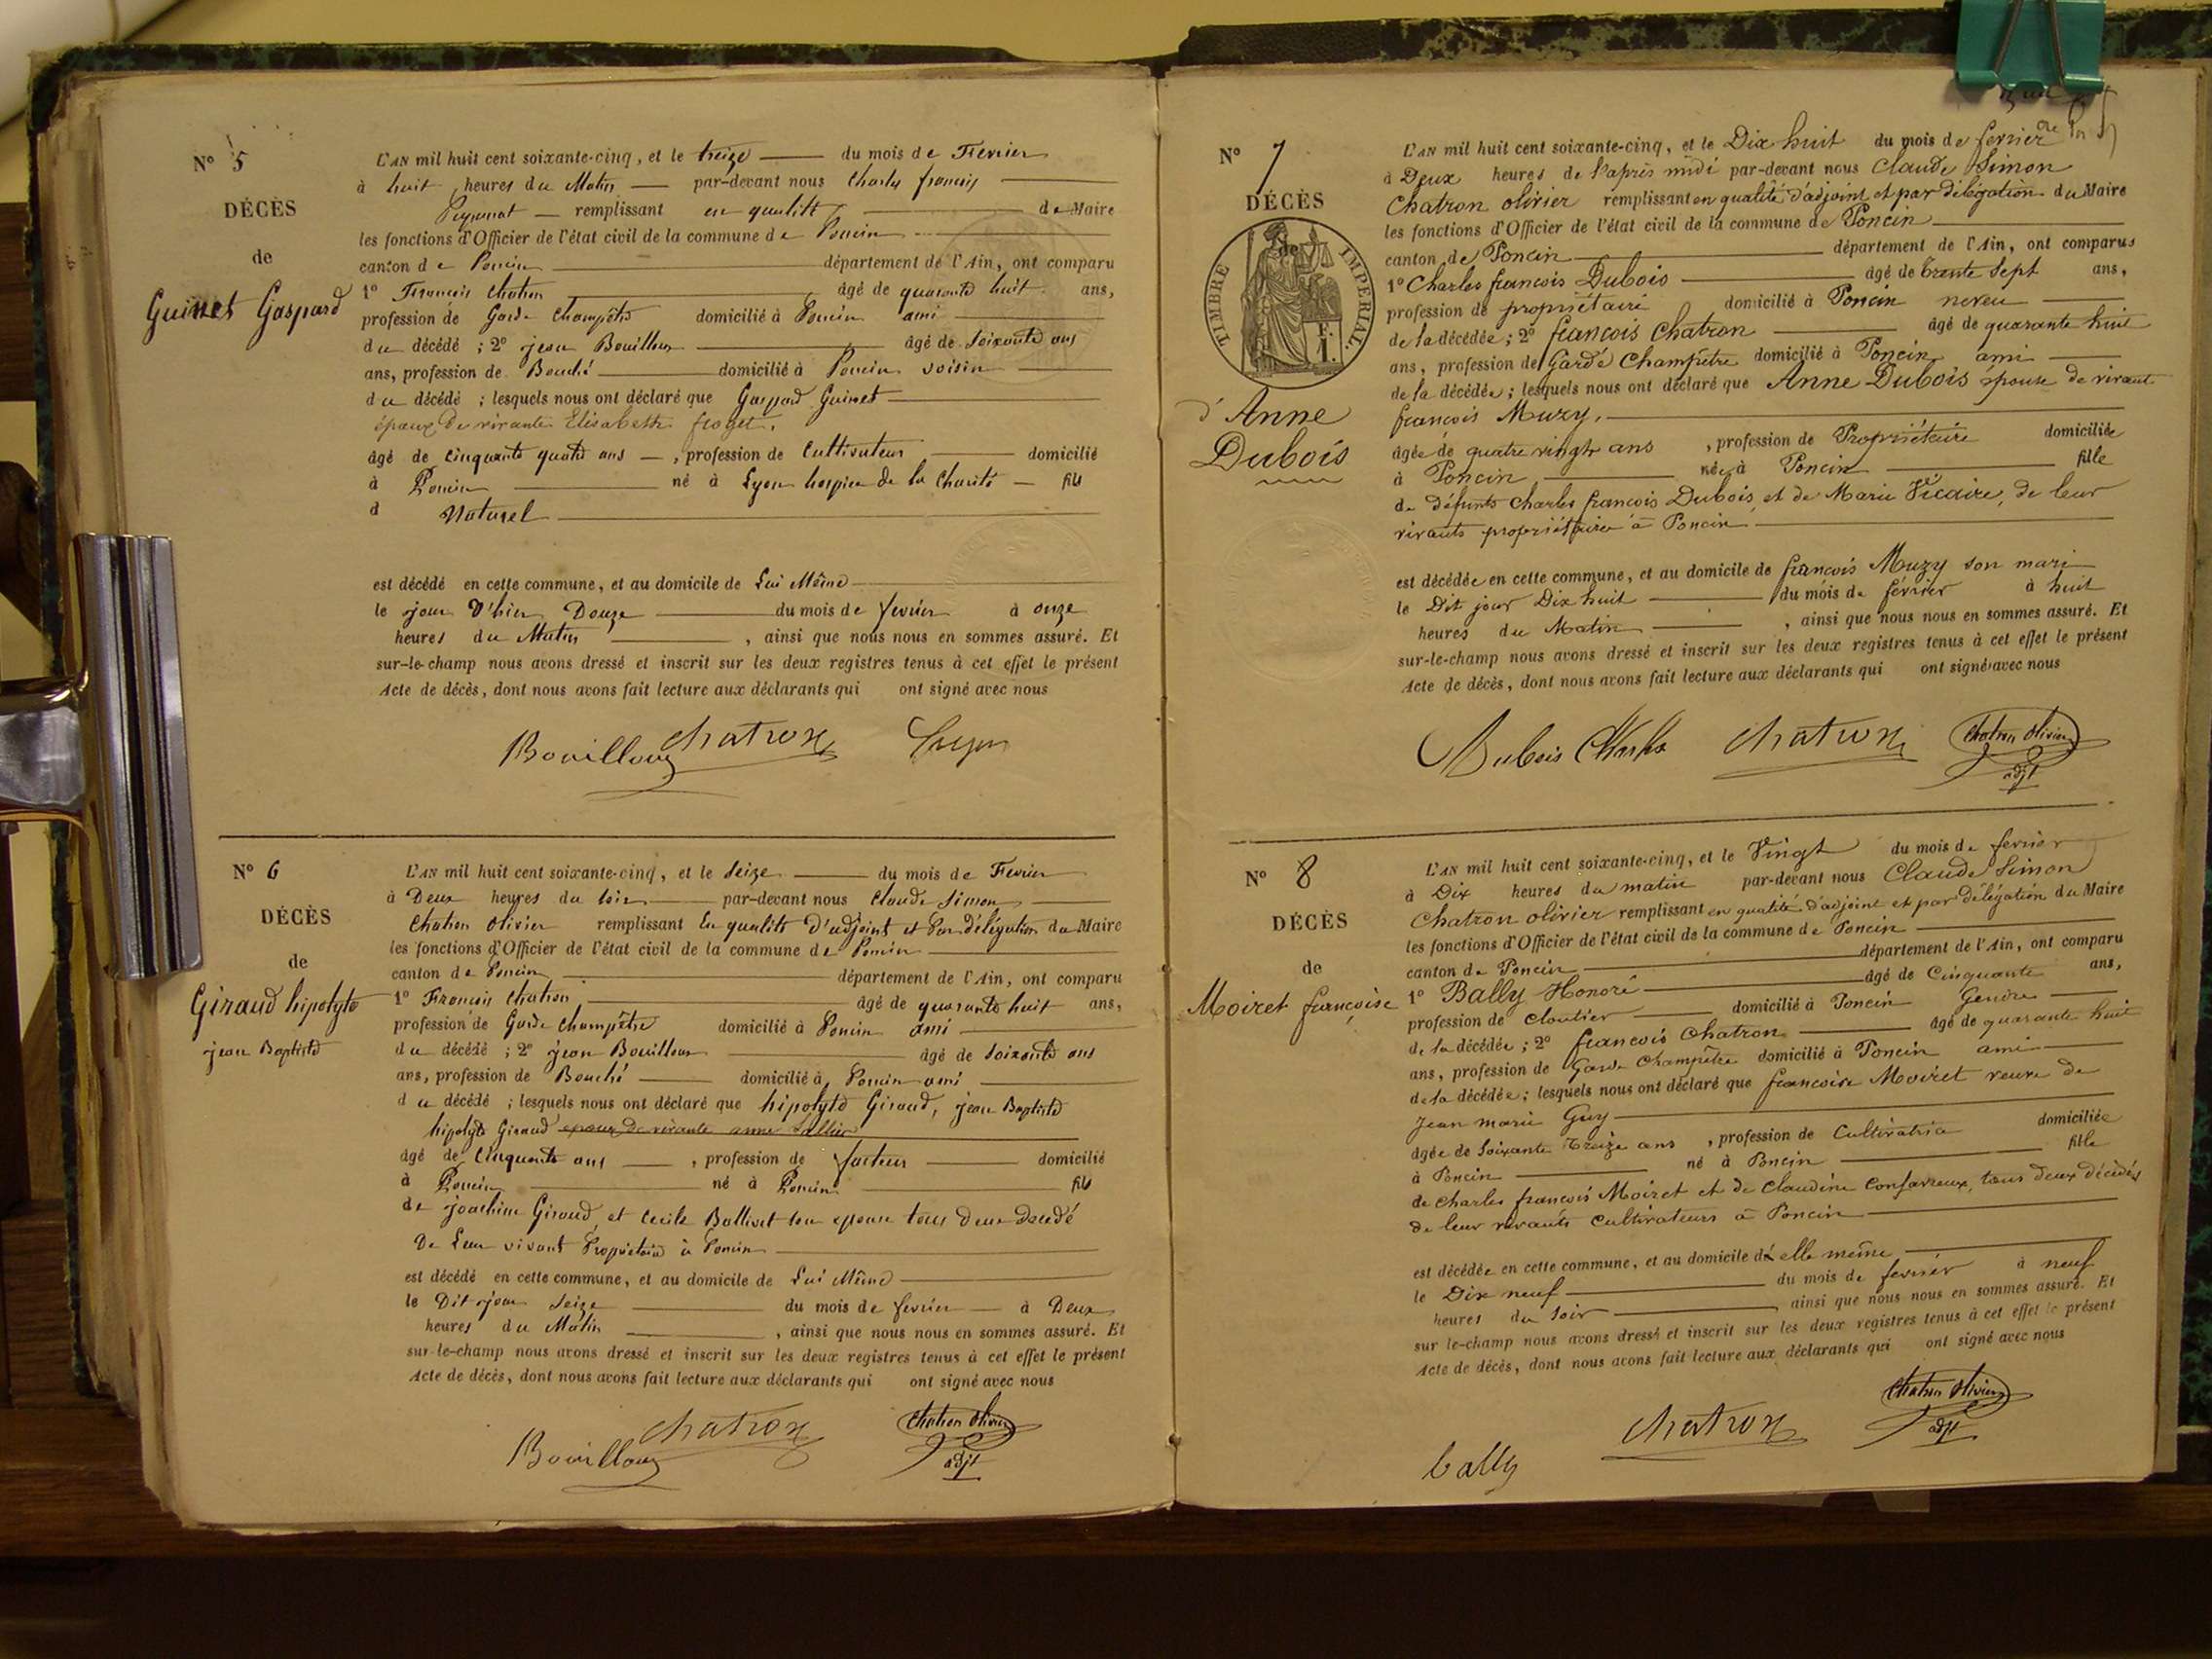 N° 5
DÉCÈS
de
Guinet Gaspard
L'AN mil huit cent soixante-cinq, et le treize du mois de Fevrier
à huit heures du Matin par-devant nous Charles françois
remplissant en qualité de Maire
les fonctions d'Officier de l'état civil de la commune de Poncin
canton de Poncin département de l'Ain, ont comparu
1° François Chatron âgé de quarante huit ans,
profession de Garde Champêtre domicilié à Poncin ami
du décédé ; 2° jean Bouilloux âgé de Soixante ans
ans, profession de Bouché domicilié à Poncin voisin
du décédé ; lesquels nous ont déclaré que Gaspard Guinet
époux de vivante Elisabeth froget.
âgé de cinquante quatre ans , profession de Cultivateur domicilié
à Poncin né à Lyon hospice de la Charité fils
d Naturel
est décédé en cette commune, et au domicile de Lui Même
le jour d'hier Douze du mois de fevrier à onze
heures du Matin , ainsi que nous nous en sommes assuré. Et
sur-le-champ nous avons dressé et inscrit sur les deux registres tenus à cet effet le présent
Acte de décès, dont nous avons fait lecture aux déclarants qui ont signé avec nous
Bouilloux chatron
N° 6
DÉCÈS
de
Giraud hipolyte
jean Baptiste
L'AN mil huit cent soixante-cinq, et le Seize du mois de Fevrier
à Deux heures du soir par-devant nous Claude Simon
Chatron Olivier remplissant En qualité d'adjoint et Par délégation du Maire
les fonctions d'Officier de l'état civil de la commune de Poncin
canton de Poncin département de l'Ain, ont comparu
1° François Chatron âgé de quarante huit ans,
profession de Garde Champêtre domicilié à Poncin ami
du décédé ; 2° jean Bouilloux âgé de Soixante ans
ans, profession de Bouché domicilié à Poncin ami
du décédé ; lesquels nous ont déclaré que hipolyte Giraud, jean Baptiste
hipolyte Giraud epoux de vivante anne
âgé de Cinquante ans , profession de facteur domicilié
à Poncin né à Poncin fils
de joachim Giraud, et Cecile Ballivet son epouse tous Deux Decedé
De Leur vivant Propriétaire à Poncin
est décédé en cette commune, et au domicile de Lui Même
le Dit jour Seize du mois de fevrier à Deux
heures du Matin , ainsi que nous nous en sommes assuré. Et
sur-le-champ nous avons dressé et inscrit sur les deux registres tenus à cet effet le présent
Acte de décès, dont nous avons fait lecture aux déclarants qui ont signé avec nous
Bouilloux chatron Chatron Olivier
adjt
N° 7
DÉCÈS
TIMBRE IMPERIAL.
d'Anne
Dubois
L'AN mil huit cent soixante-cinq, et le Dix huit du mois de fevrier
à Deux heures de l'après midi par-devant nous Claude Simon
Chatron olivier remplissant en qualité d'adjoint et par délégation du Maire
les fonctions d'Officier de l'état civil de la commune de Poncin
canton de Poncin département de l'Ain, ont comparus
1° Charles françois Dubois âgé de trente Sept ans,
profession de propriétaire domicilié à Poncin neveu
de la décédée ; 2° françois Chatron âgé de quarante huit
ans, profession de Garde Champêtre domicilié à Poncin ami
de la décédée ; lesquels nous ont déclaré que Anne Dubois épouse de vivant
françois Muzy.
âgée de quatre vingts ans , profession de Propriétaire domiciliée
à Poncin née à Poncin fille
de défunts Charles françois Dubois, et de Marie Vicaire, de leur
vivants propriétaire à Poncin
est décédée en cette commune, et au domicile de françois Muzy son mari
le Dit jour Dix huit du mois de février à huit
heures du Matin , ainsi que nous nous en sommes assuré. Et
sur-le-champ nous avons dressé et inscrit sur les deux registres tenus à cet effet le présent
Acte de décès, dont nous avons fait lecture aux déclarants qui ont signé avec nous
Dubois Charles chatron Chatron Olivier
adjt
N° 8
DÉCÈS
de
Moiret françoise
L'AN mil huit cent soixante-cinq, et le Vingt du mois de fevrier
à Dix heures du matin par-devant nous Claude Simon
Chatron olivier remplissant en qualité d'adjoint et par délégation du Maire
les fonctions d'Officier de l'état civil de la commune de Poncin
canton de Poncin département de l'Ain, ont comparu
1° Bally Honoré âgé de Cinquante ans,
profession de cloutier domicilié à Poncin Gendre
de la décédée ; 2° françois Chatron âgé de quarante huit
ans, profession de Garde Champêtre domicilié à Poncin ami
de la décédée ; lesquels nous ont déclaré que françoise Moiret veuve de
Jean marie Guy
âgée de Soixante treize ans , profession de Cultivatrice domiciliée
à Poncin né à Poncin fille
de Charles françois Moiret et de Claudine Confavreux, tous deux décédés
de leur vivants cultivateurs à Poncin
est décédée en cette commune, et au domicile d'elle même
le Dix neuf du mois de fevrier à neuf
heures du soir , ainsi que nous nous en sommes assuré. Et
sur le-champ nous avons dressé et inscrit sur les deux registres tenus à cet effet le présent
Acte de décès, dont nous avons fait lecture aux déclarants qui ont signé avec nous
bally chatron Chatron Olivier
adjt